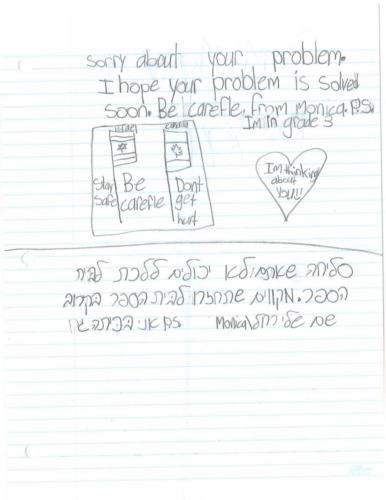 sorry about your problem.
I hope your problem is solved
soon. Be carefle. from monica. P.S.
Im in grade 3
israel canada
Stay Be Dont
safe carefle get
hurt
I'm thinking
about
you!!
סליחה שאתם לא יכולים ללכת לבית
הספר. מקווים שתחזרו לבית הספר בקרוב
שם שלי רחל\Monica P.S אני בכיתה ג